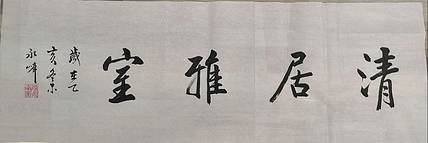 清居雅室
歲在乙
亥冬
永峰